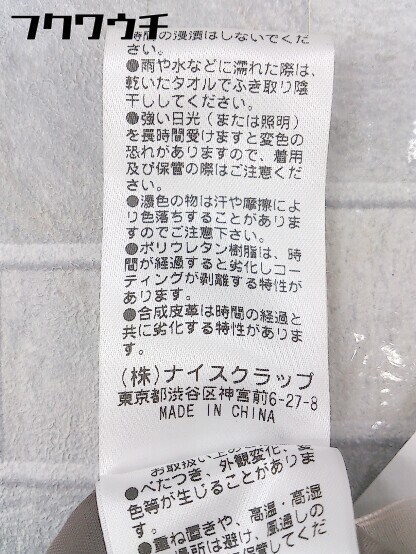 フクワウチ
時間の浸漬はしないでくだ
さい。
●雨や水などに濡れた際は、
乾いたタオルでふき取り陰
干ししてください。
●強い日光（または照明）
を長時間受けますと変色の
恐れがありますので、着用
及び保管の際はご注意くだ
さい。
●濃色の物は汗や摩擦によ
り色落ちすることがありま
すのでご注意下さい。
●ポリウレタン樹脂は、時
間が経過すると劣化しコー
ティングが剥離する特性が
あります。
●合成皮革は時間の経過と
共に劣化する特性がありま
す。
（株）ナイスクラップ
東京都渋谷区神宮前6-27-8
MADE IN CHINA
お取扱い上の
●べたつき、外観変化、変
色等が生じることがありま
す。
●重ね置きや、高温・高湿
の場所は避け、風通しの
保管してくだ